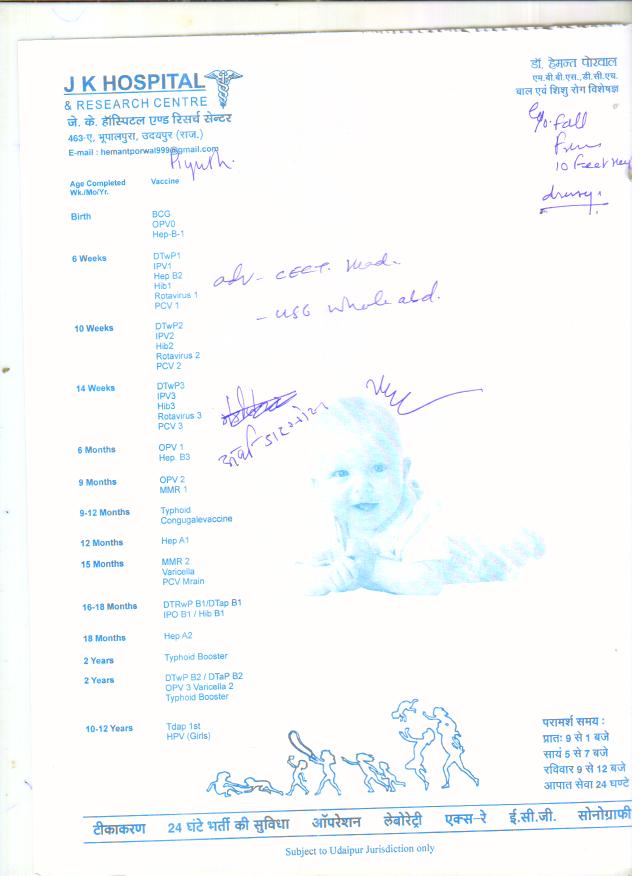 J K HOSPITAL
& RESEARCH CENTRE
जे. के. हॉस्पिटल एण्ड रिसर्च सेन्टर
463-ए, भूपालपुरा, उदयपुर (राज.)
E-mail : hemantporwal999@gmail.com
डॉ. हेमन्त पोरवाल
एम.बी.बी.एस., डी.सी.एच.
बाल एवं शिशु रोग विशेषज्ञ
Piyush.
c/o fall
from
10 feet
drowsy.
Age Completed Wk./Mo/Yr. Vaccine
Birth BCG
OPV0
Hep-B-1
6 Weeks DTwP1
IPV1
Hep B2
Hib1
Rotavirus 1
PCV 1
adv - CECT. Head.
- USG whole abd.
10 Weeks DTwP2
IPV2
Hib2
Rotavirus 2
PCV 2
14 Weeks DTwP3
IPV3
Hib3
Rotavirus 3
PCV 3
6 Months OPV 1
Hep. B3
9 Months OPV 2
MMR 1
9-12 Months Typhoid
Congugalevaccine
12 Months Hep A1
15 Months MMR 2
Varicella
PCV Mrain
16-18 Months DTRwP B1/DTap B1
IPO B1 / Hib B1
18 Months Hep A2
2 Years Typhoid Booster
2 Years DTwP B2 / DTaP B2
OPV 3 Varicella 2
Typhoid Booster
10-12 Years Tdap 1st
HPV (Girls)
परामर्श समय :
प्रातः 9 से 1 बजे
सायं 5 से 7 बजे
रविवार 9 से 12 बजे
आपात सेवा 24 घण्टे
टीकाकरण 24 घंटे भर्ती की सुविधा ऑपरेशन लेबोरेट्री एक्स-रे ई.सी.जी. सोनोग्राफी
Subject to Udaipur Jurisdiction only